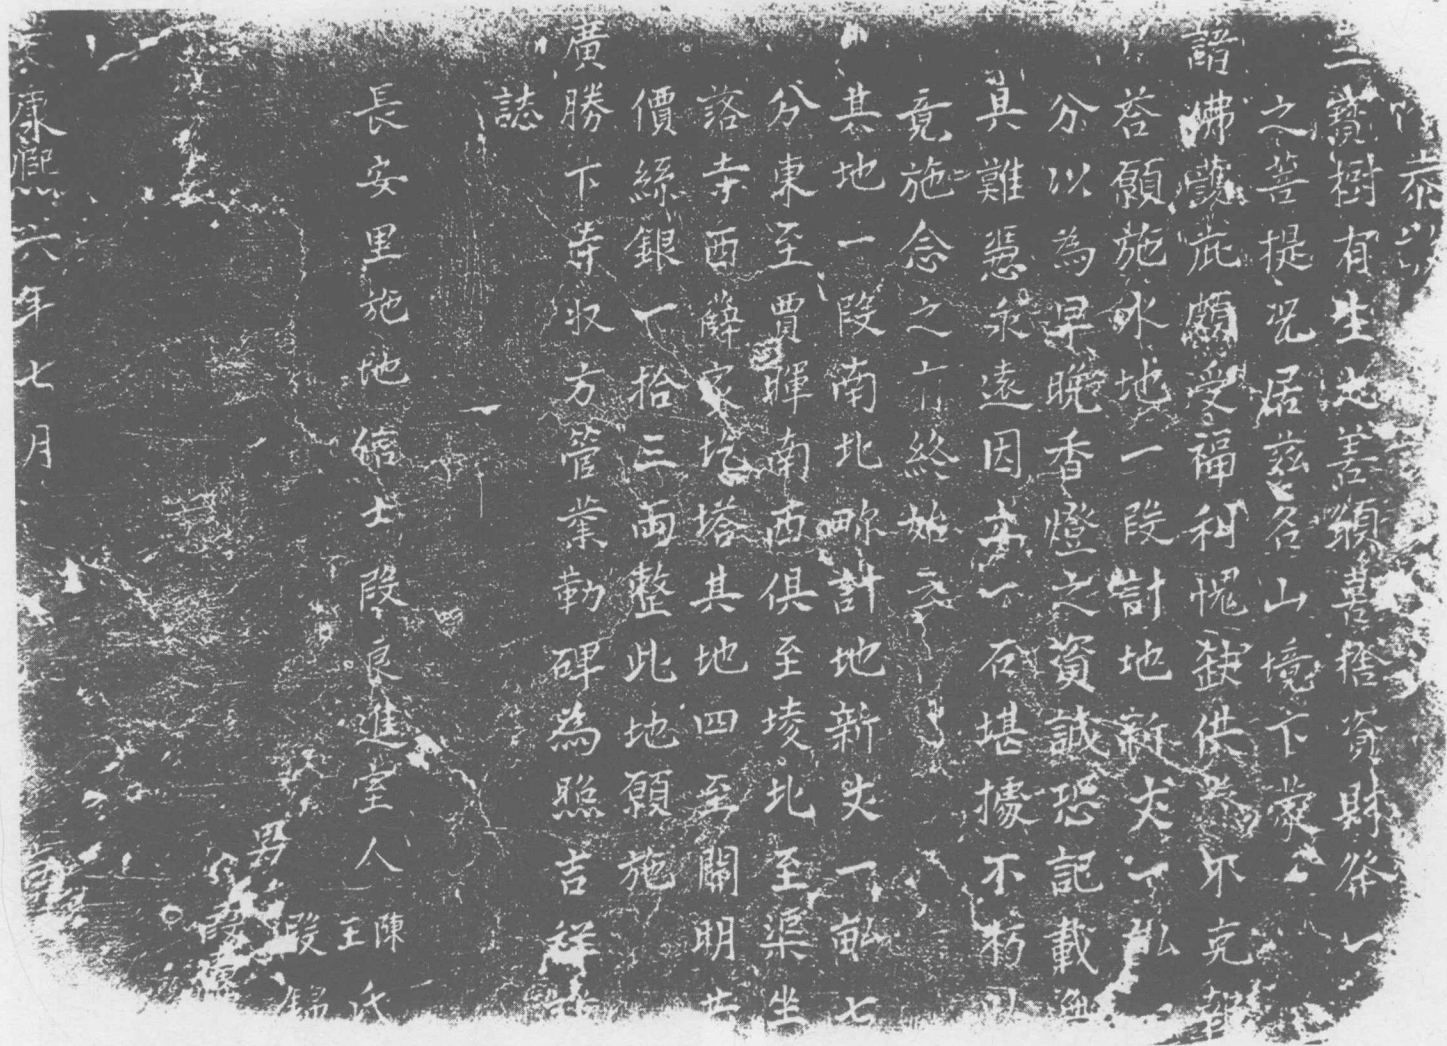 恭
三寶樹有生之善願喜捨資財发一
之菩提況居茲名山境下蒙
諸佛蔭庇願受福利愧缺供養不克報
答願施水地一段計地新丈一畝
分以為早晚香燈之資誠恐記載無
具難患永遠因立一石堪據不朽以
竟施念之有終始云
其地一段南北畛計地新丈一畝七
分東至賈暉南西俱至堎北至渠坐
落寺西薛家圪塔其地四至開明共
價絲銀一拾三兩整此地願施
廣勝下寺收方管業勒碑為照吉祥
誌
長安里施地信士段良進室人陳王氏
男段
段
康熙六年七月